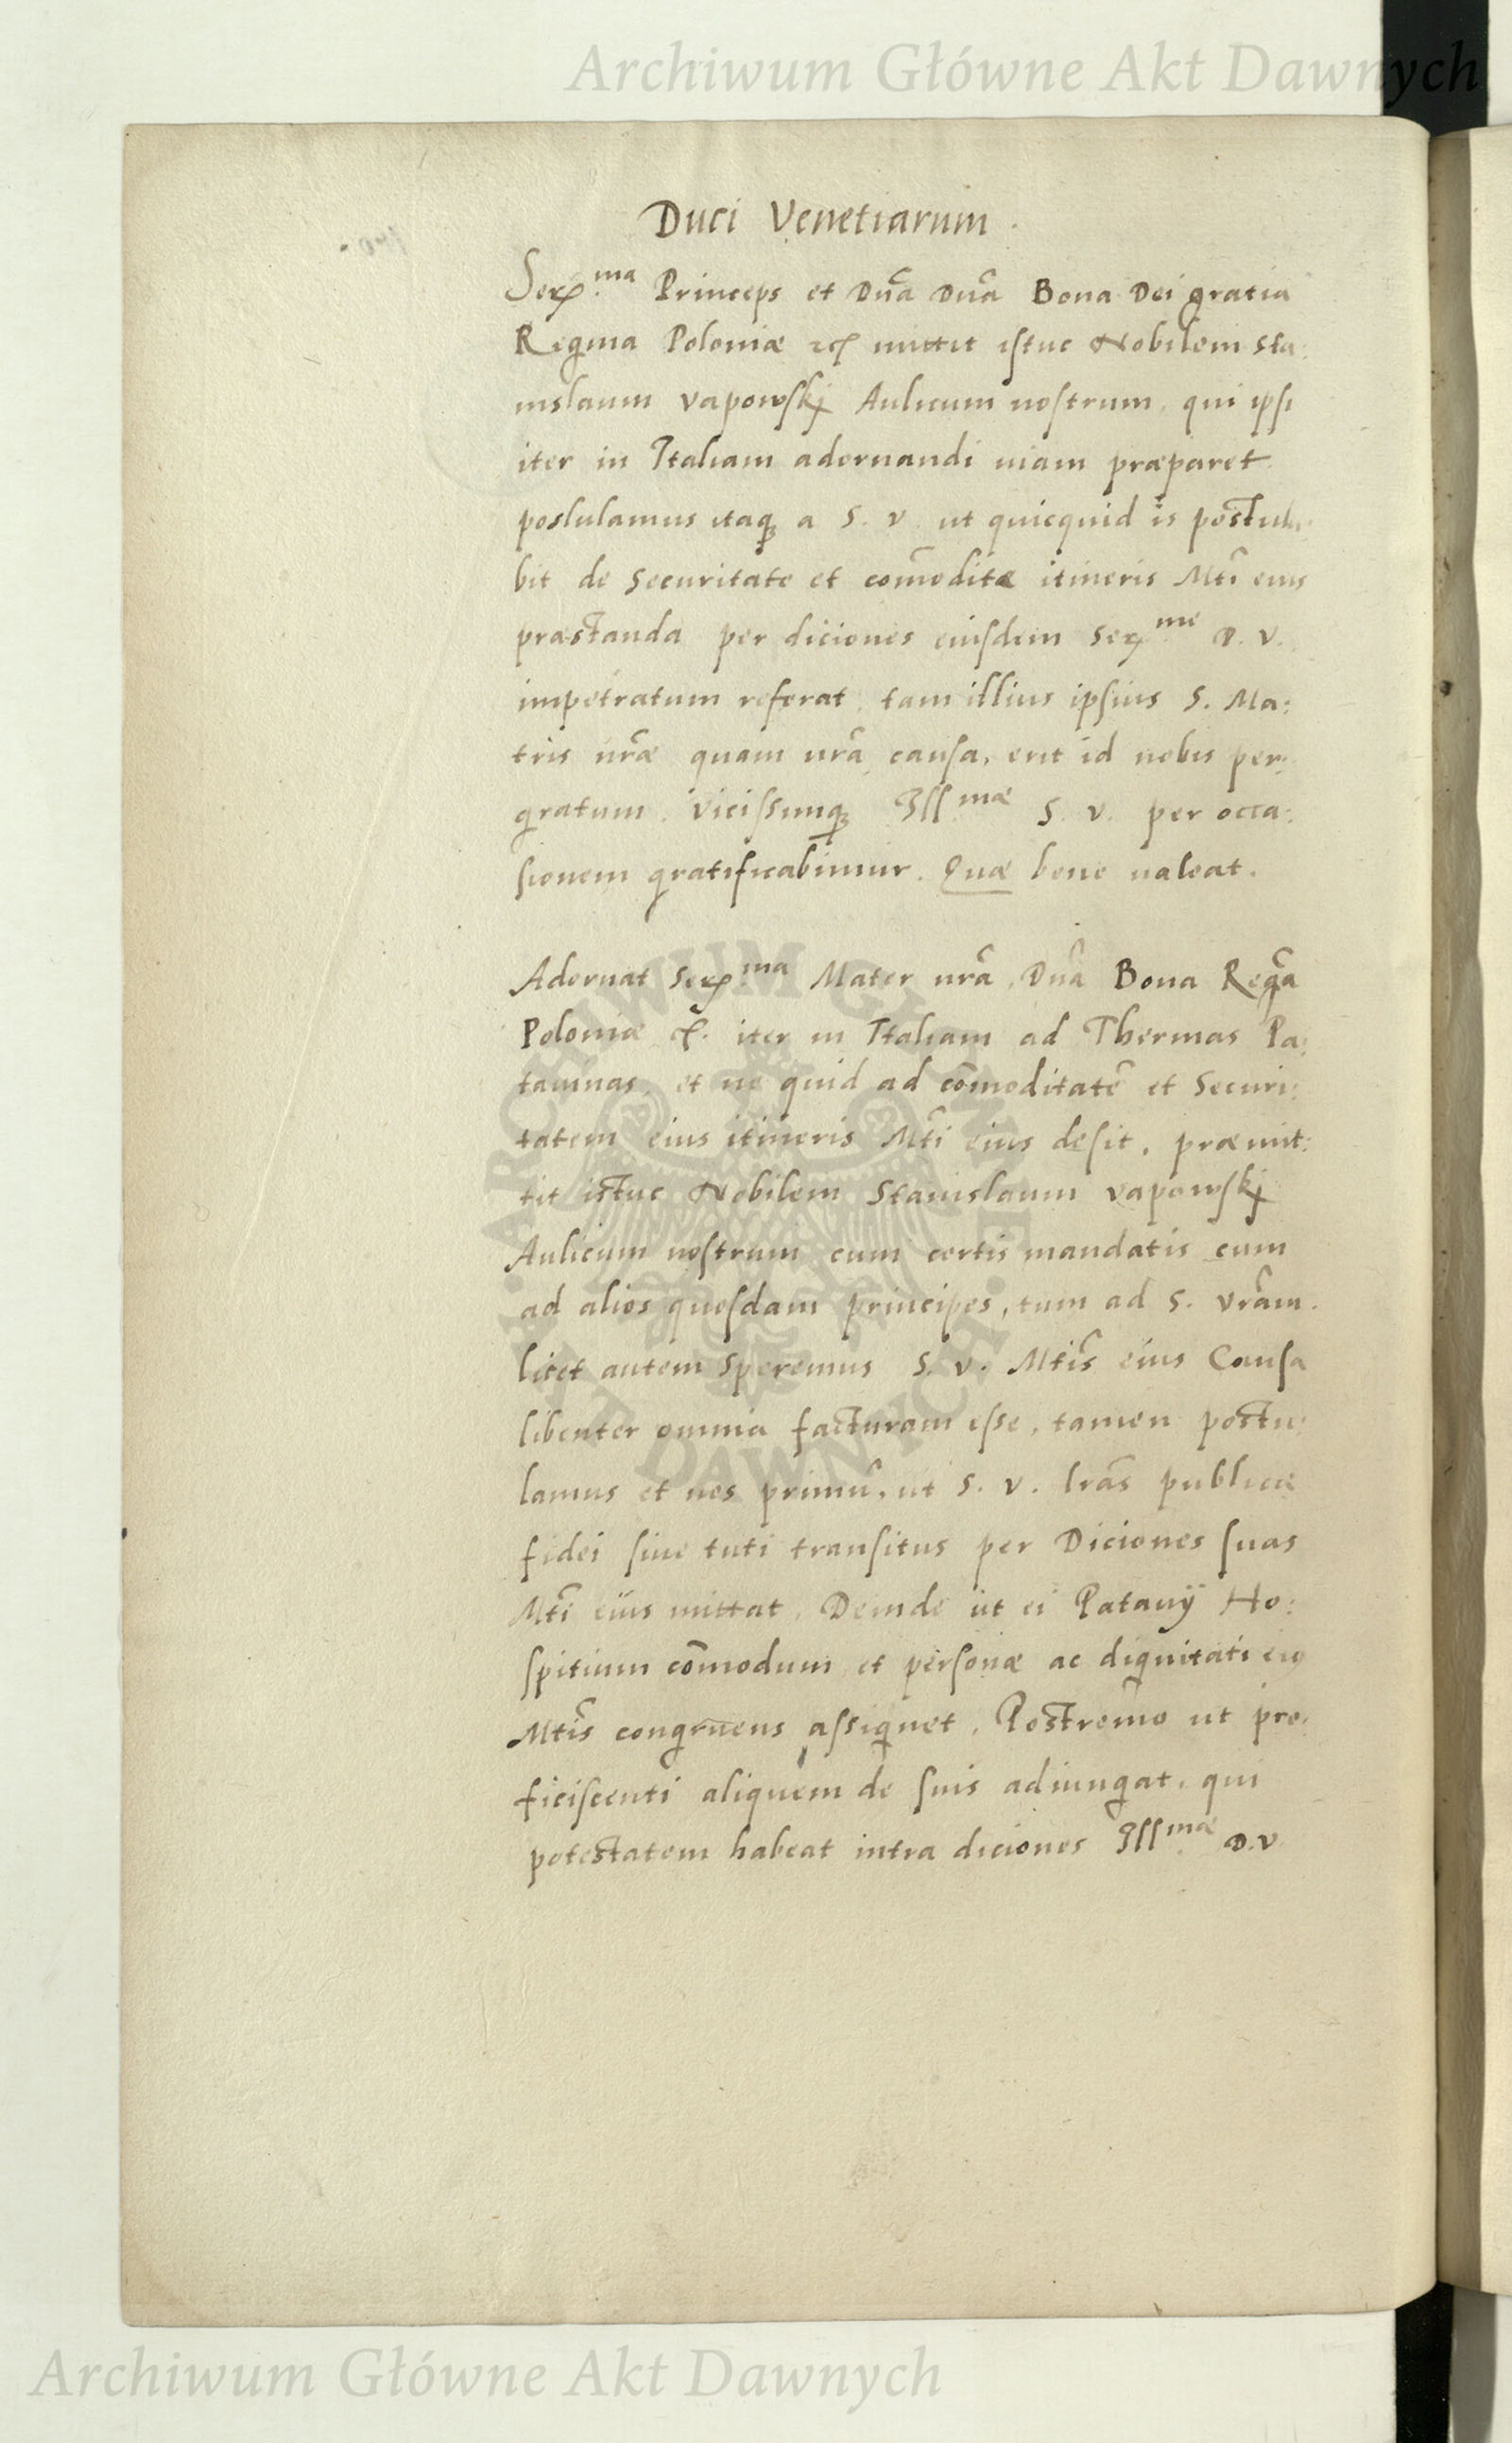 Archiwum Główne Akt Dawnych
Duci Venetiarum.
Ser.ma Princeps et Dña Dña Bona Dei gratia
Regina Poloniæ etc mittit istuc Nobilem Sta:
nislaum Vapowskj Aulicum nostrum, qui ipsi
iter in Italiam adornandi uiam præparet.
postulamus itaq; a S. V. ut quicquid is postula:
bit de securitate et com̃oditæ itineris Mti eius
præstanda per diciones eiusdem Ser.me D. V.
impetratum referat, tam illius ipsius S. Ma:
tris nr̃æ quam nr̃a causa, erit id nobis per:
gratum. Vicissimq; Ill.mæ S. V. per occa:
sionem gratificabimur. Quæ bene ualeat.
Adornat Ser.ma Mater nr̃a, Dña Bona Regĩa
Poloniæ etc. iter in Italiam ad Thermas Pa:
tauinas, et ne quid ad com̃oditatẽ et Securi:
tatem eius itineris Mti eius desit, præmit:
tit istuc Nobilem Stanislaum Vapowskj
Aulicum nostrum cum certis mandatis cum
ad alios quosdam principes, tum ad S. Vr̃am.
licet autem Speremus S. V. Mtis eius Causa
libenter omnia facturam esse, tamen postu:
lamus et nos primũ, ut S. V. lr̃as publicæ
fidei siue tuti transitus per Diciones suas
Mti eius mittat, Deinde ut ei Patauij Ho:
spitium com̃odum et personæ ac dignitati eius
Mtis congruens assignet, Postremo ut pro:
ficiscenti aliquem de suis adiungat, qui
potestatem habeat intra diciones Ill.mæ D. V.
ARCHIWUM GŁÓWNE
AKT DAWNYCH
Archiwum Główne Akt Dawnych